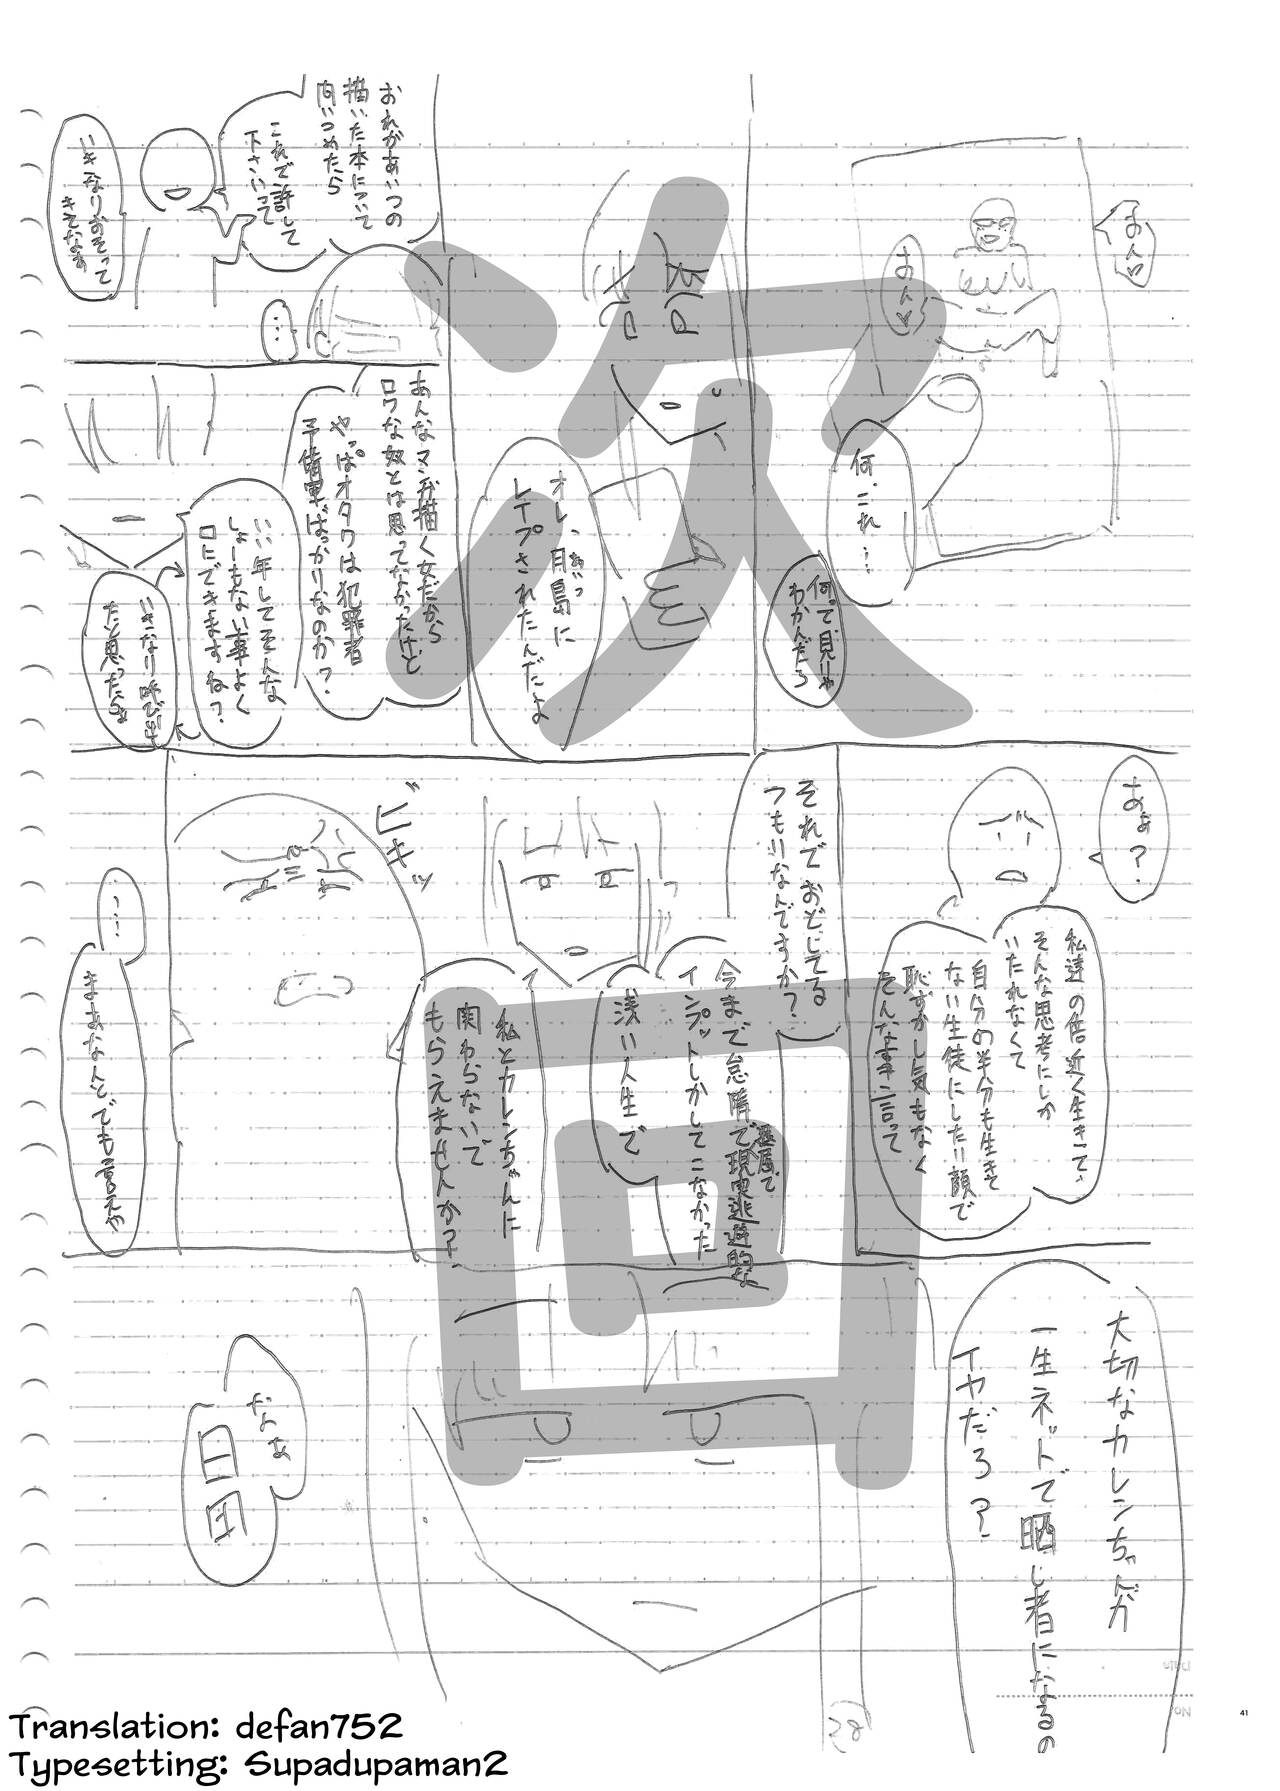 あん♡
あん♡
何、これ…
何って見りゃ
わかんだろ
オレっ
月島に
レイプされたんだよ
おれがあいつの
描いた本について
問いつめたら
これで許して
下さいって
いきなりおそって
きてなぁ
…
あんなマンガ描く女だから
ロクな奴とは思ってなかったけど
やっぱオタクは犯罪者
予備軍ばっかりなのか?
いい年してそんな
しょーもない事よく
口にできますね?
いきなり呼び出し
たと思ったらぁ
あぁ?
私達の倍近く生きて、
そんな思考にしか
いたれなくて
自分の半分も生きて
ない生徒にしたり顔で
恥ずかし気もなく
そんな事言って
それでおどしてる
つもりなんですか?
今まで怠惰で現実逃避的な
インプットしかしてこなかった
浅い人生で
私とカレンちゃんに
関わらないで
もらえませんか?
ビキッ
……
まぁなんとでも言えや
大切なカレンちゃんが
一生ネットで晒し者になるの
イヤだろ?
なぁ
日田
38
次回
41
Translation: defan752
Typesetting: Supadupaman2